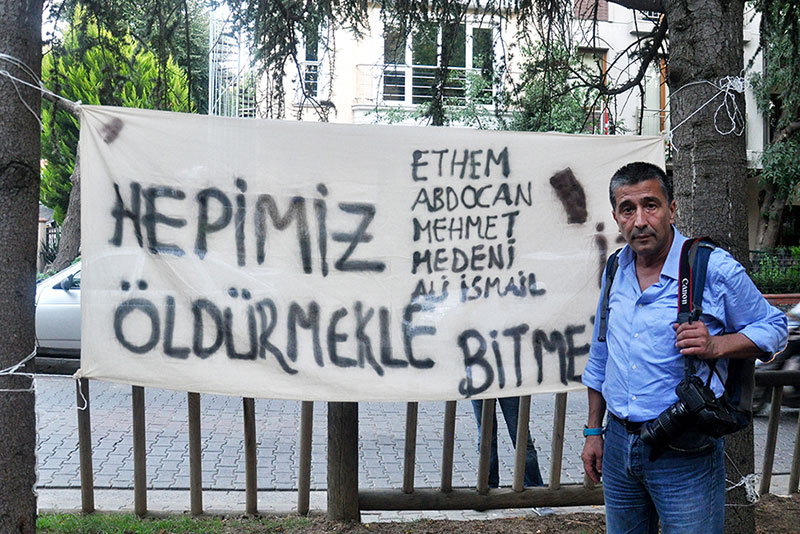 HEPİMİZ
ETHEM
ABDOCAN
MEHMET
MEDENİ
ALİ İSMAİL
ÖLDÜRMEKLE BİTME
Canon